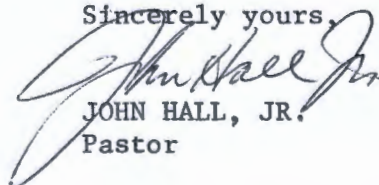 Sincerely yours,
John Hall Jr.
JOHN HALL, JR.
Pastor